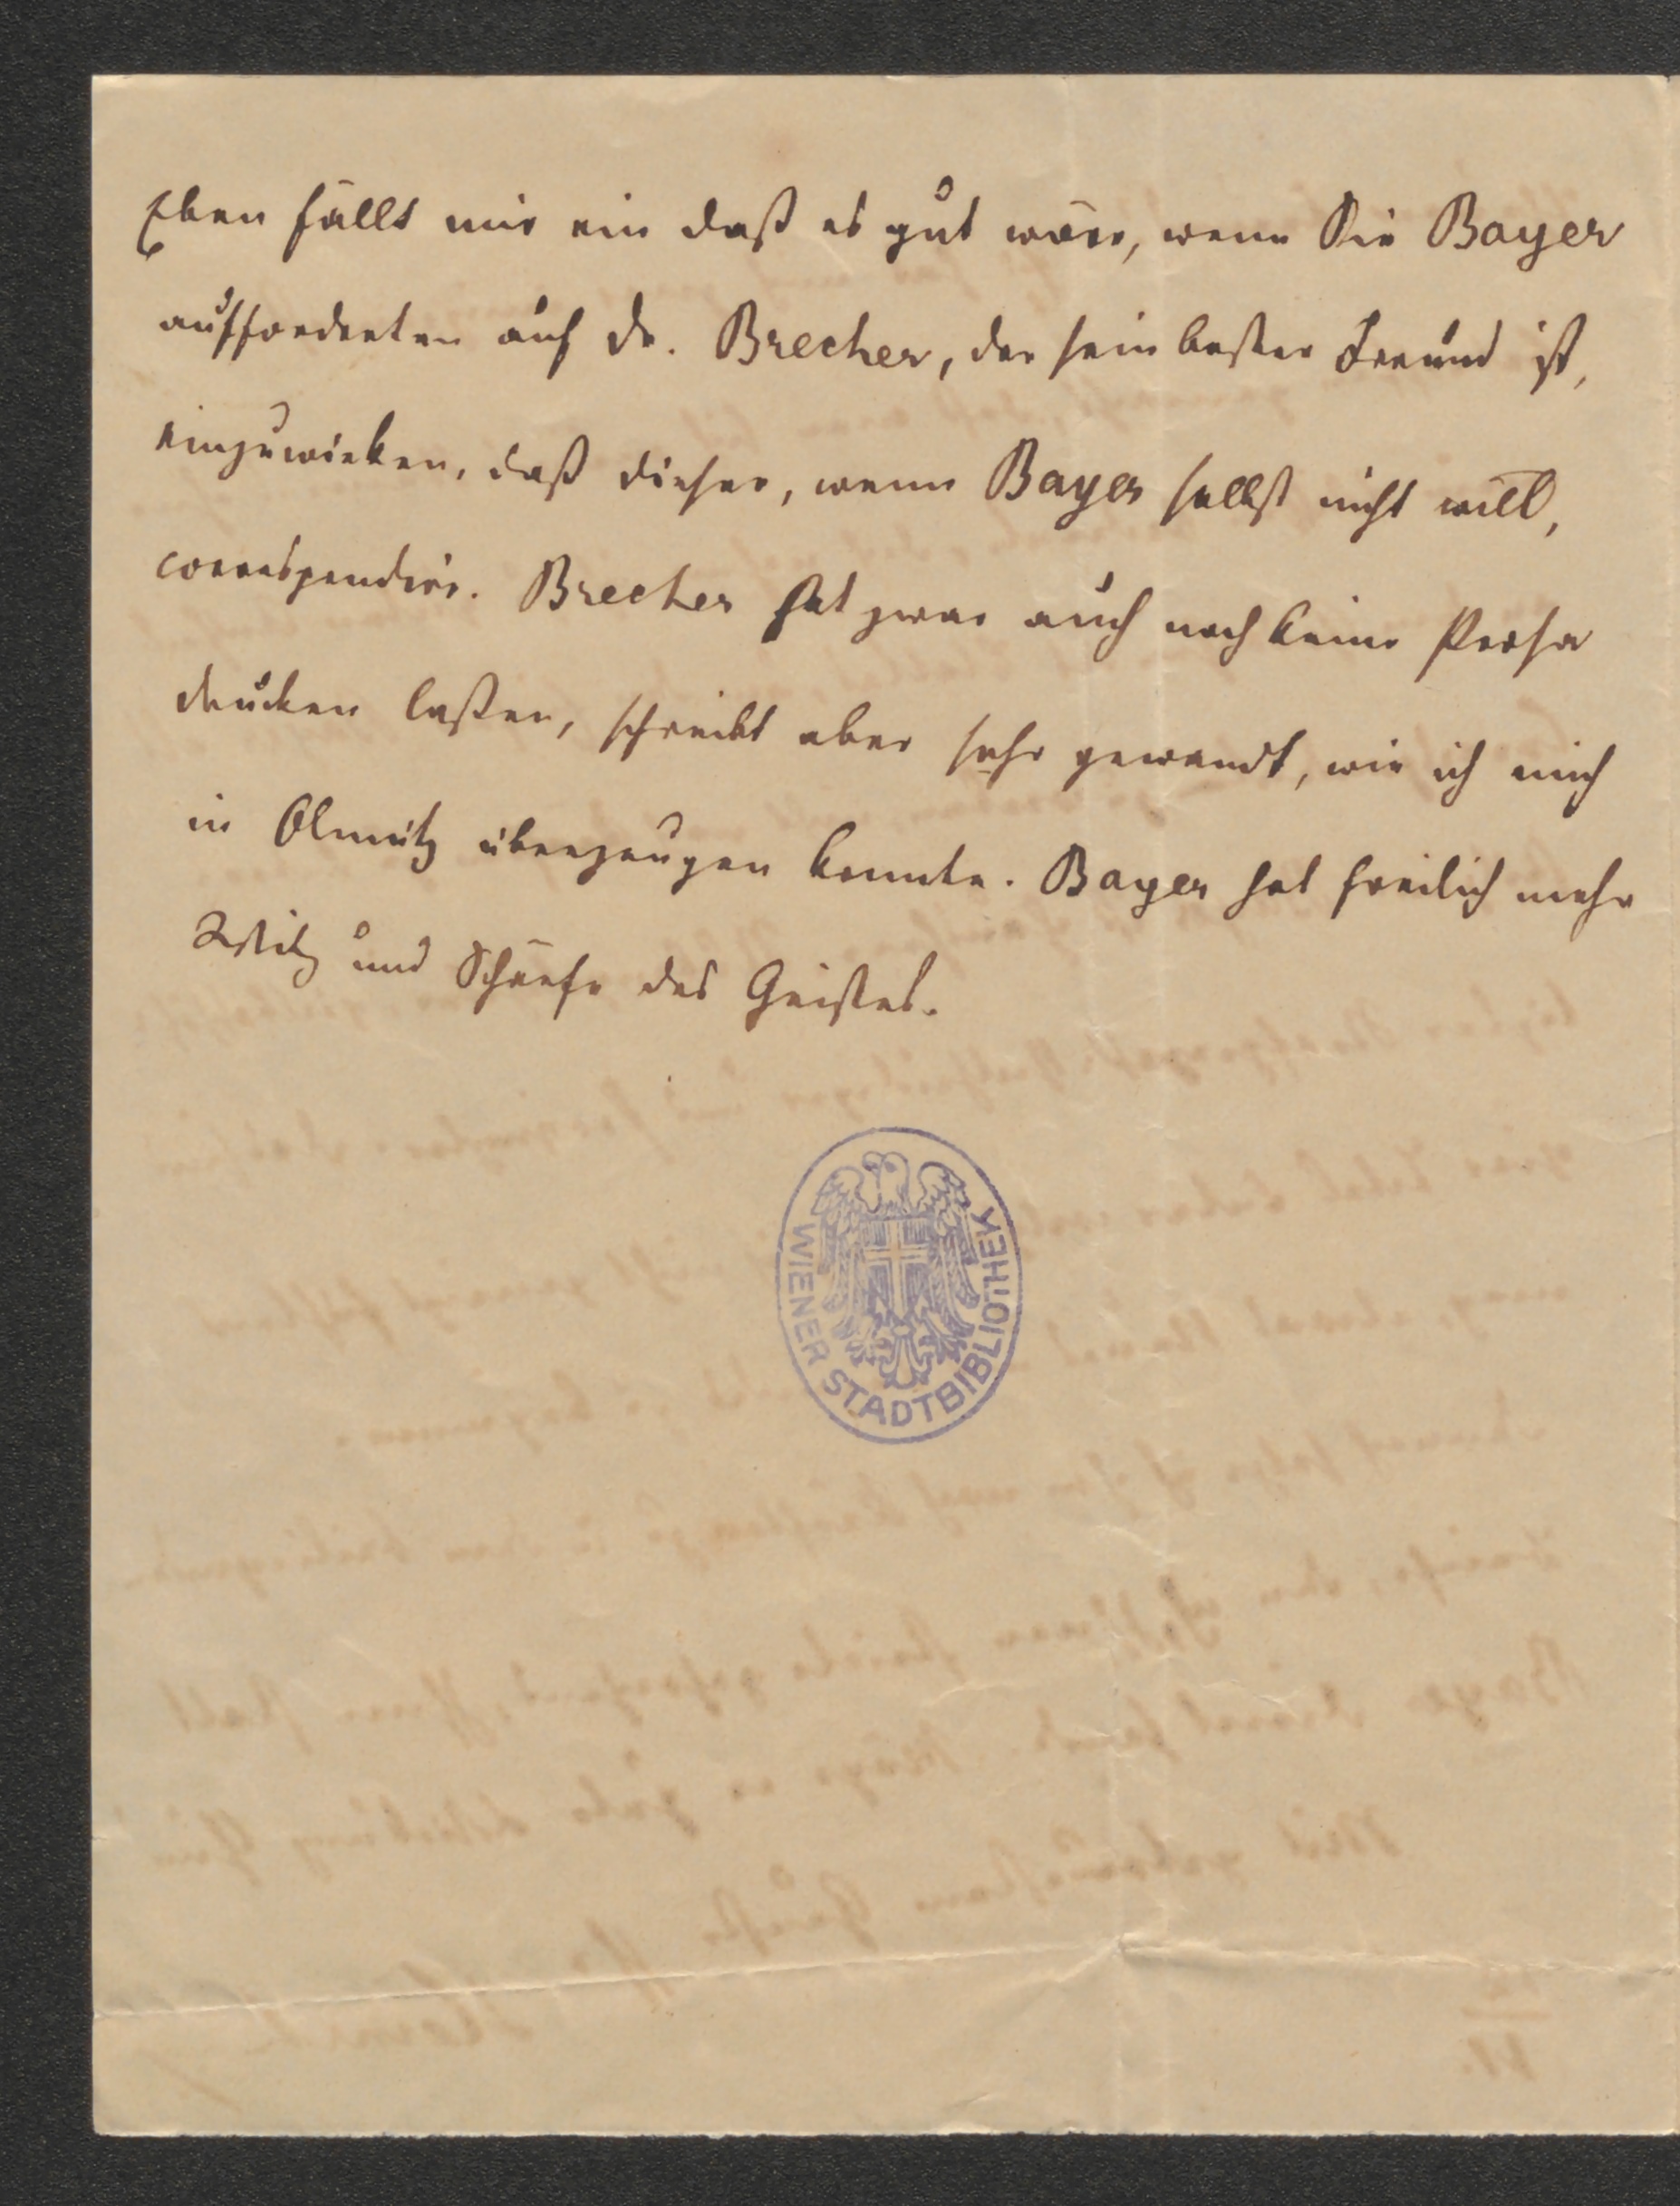 Eben fällt mir ein daß es gut wäre, wenn Sie Bayer
aufforderten auf Dr. Brecher, der sein bester Freund ist,
einzuwirken, daß dieser, wenn Bayer selbst nicht will,
correspondire. Brecher hat zwar auch noch keine Prosa
drucken laßen, schreibt aber sehr gewandt, wie ich mich
in Olmütz überzeugen konnte. Bayer hat freilich mehr
Witz und Schärfe des Geistes.
WIENER STADTBIBLIOTHEK